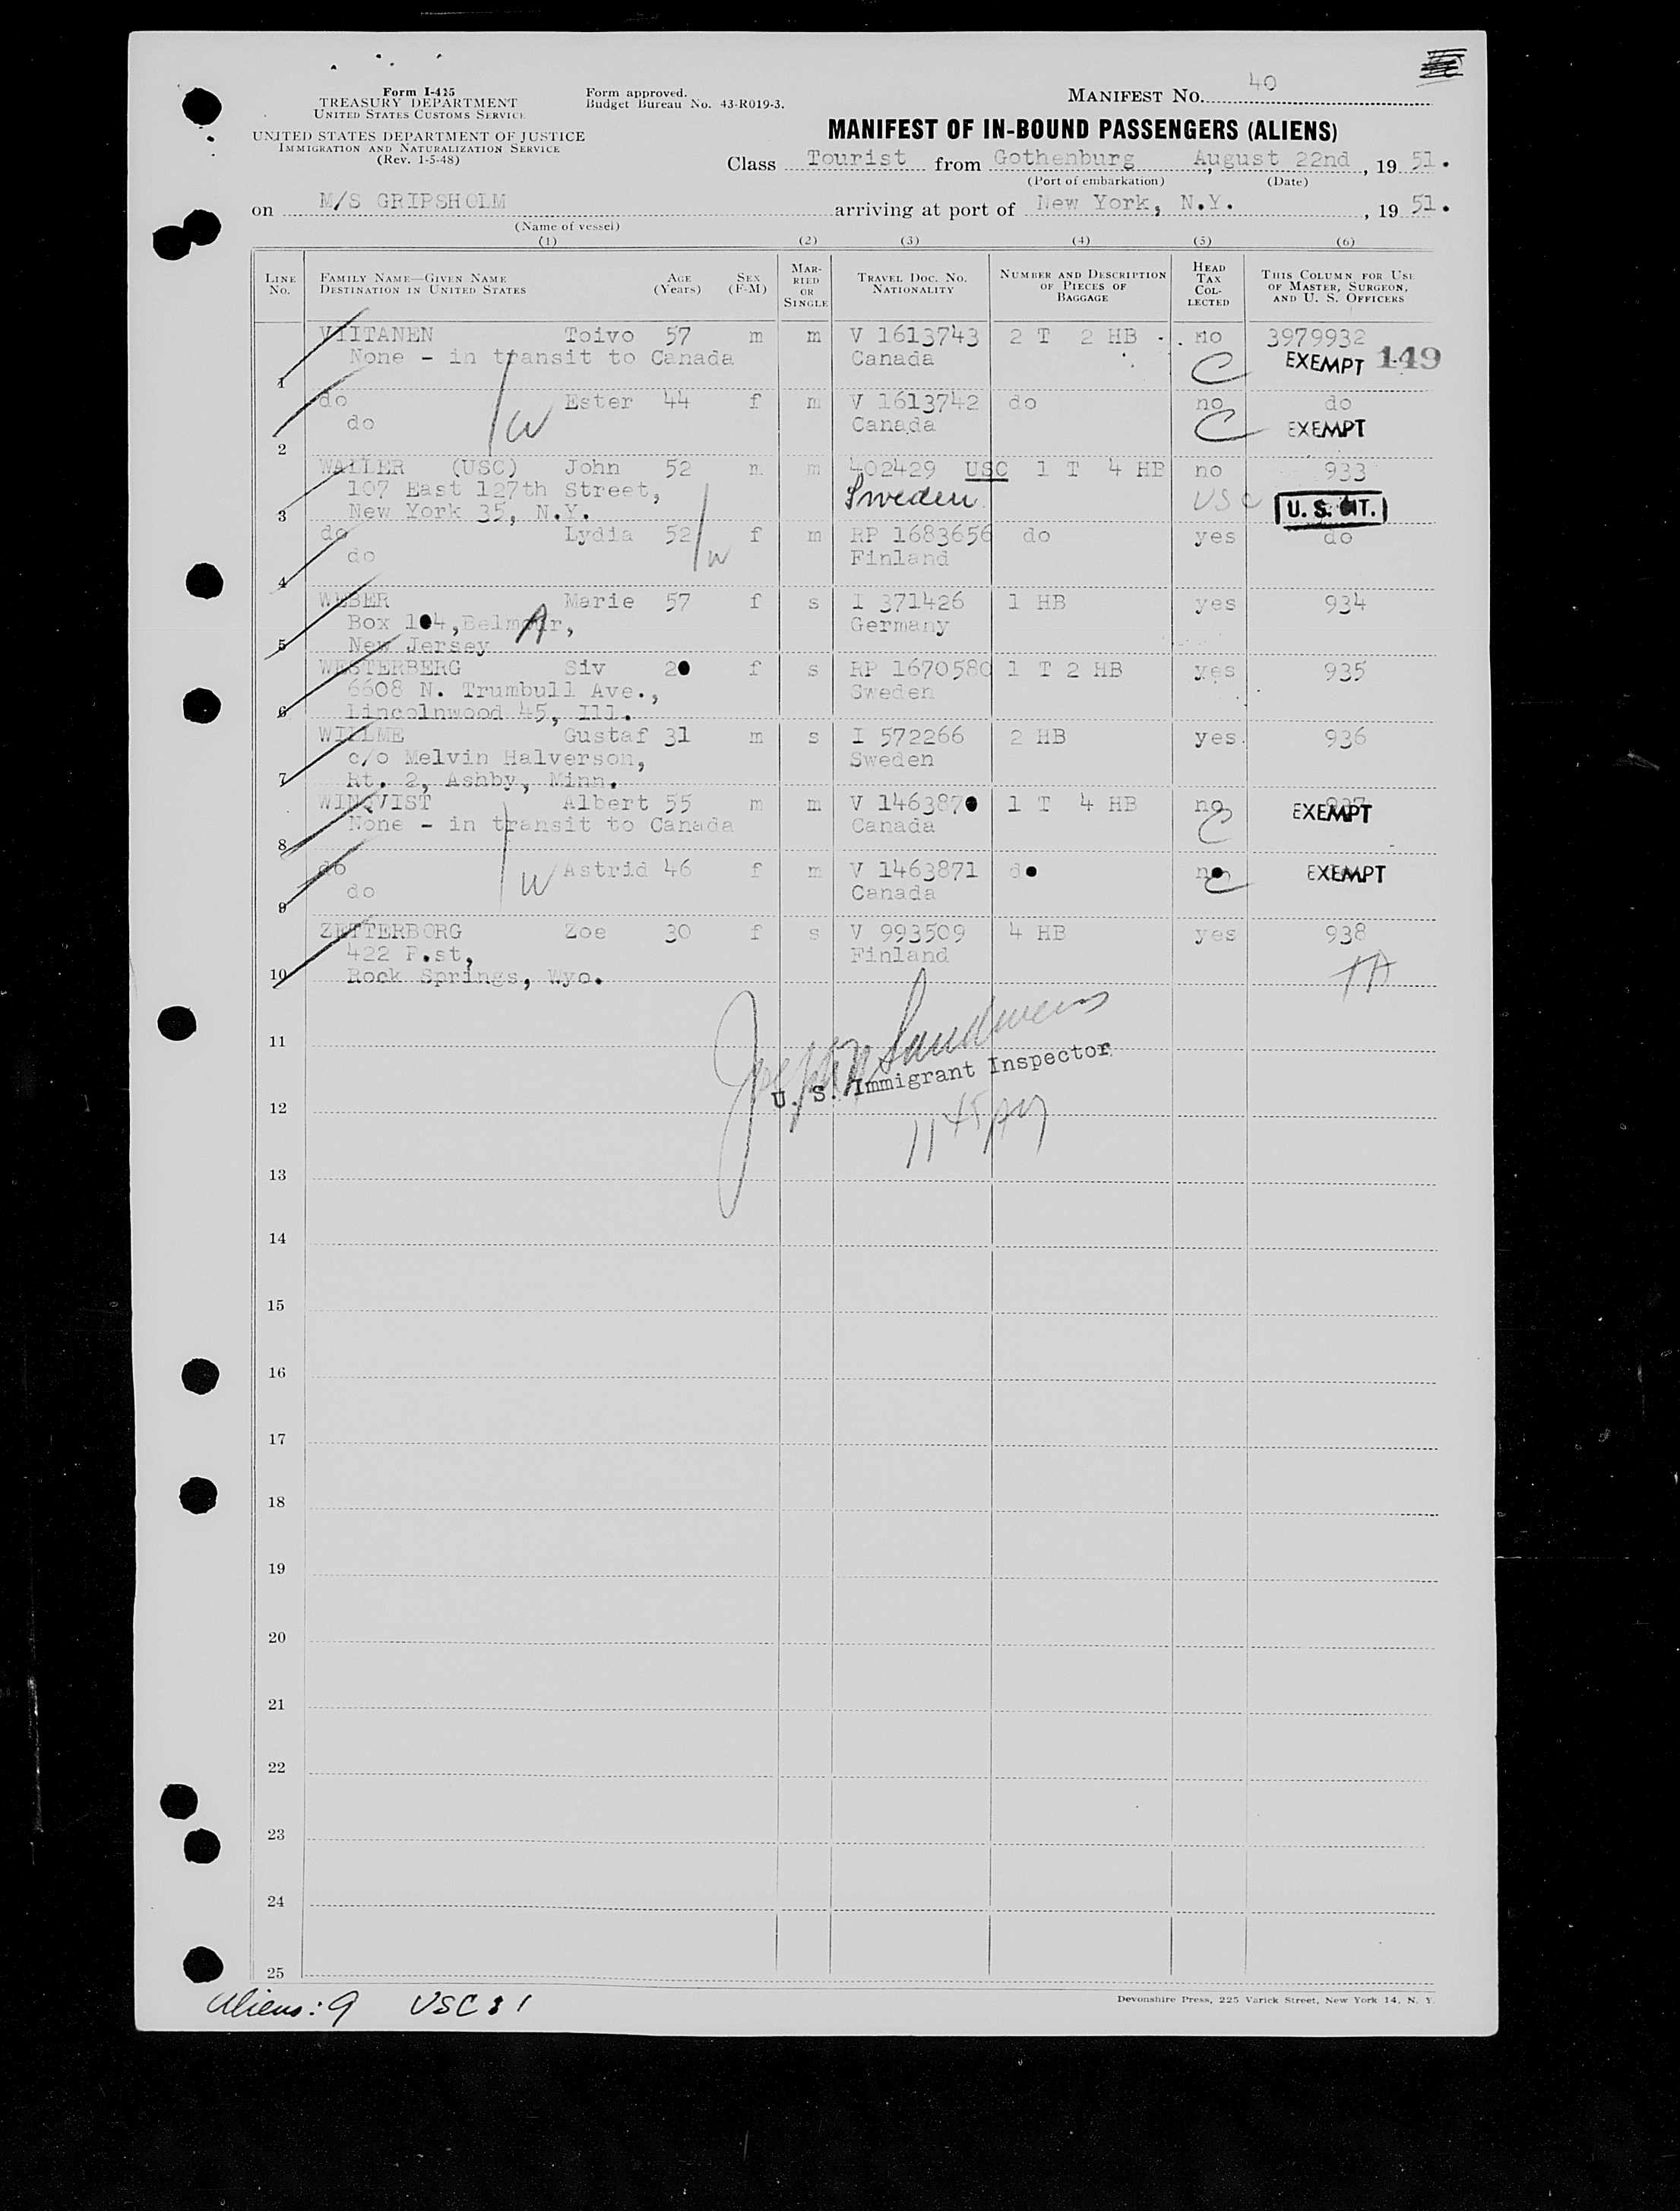 Form I-415
TREASURY DEPARTMENT
UNITED STATES CUSTOMS SERVICE
UNITED STATES DEPARTMENT OF JUSTICE
IMMIGRATION AND NATURALIZATION SERVICE
(Rev. 1-5-48)
Form approved.
Budget Bureau No. 43-R019-3.
MANIFEST NO. 40
MANIFEST OF IN-BOUND PASSENGERS (ALIENS)
Class Tourist from Gothenburg, August 22nd, 19 51.
(Port of embarkation) (Date)
on M/S GRIPSHOLM arriving at port of New York, N.Y., 19 51.
(Name of vessel)
(1) (2) (3) (4) (5) (6)
LINE NO. FAMILY NAME—GIVEN NAME DESTINATION IN UNITED STATES AGE (Years) SEX (F-M) MARRIED OR SINGLE TRAVEL DOC. NO. NATIONALITY NUMBER AND DESCRIPTION OF PIECES OF BAGGAGE HEAD TAX COLLECTED THIS COLUMN FOR USE OF MASTER, SURGEON, AND U. S. OFFICERS
VIITANEN Toivo 57 m m V 1613743 2 T 2 HB no 3979932
None - in transit to Canada Canada C EXEMPT 149
1
do Ester 44 f m V 1613742 do no do
do W Canada C EXEMPT
2
WALLER (USC) John 52 m m 402429 USC 1 T 4 HB no 933
107 East 127th Street, Sweden USC U. S. CIT.
3 New York 35, N.Y.
do Lydia 52 f m RP 1683656 do yes do
do W Finland
4
WEBER Marie 57 f s I 371426 1 HB yes 934
Box 104, Belmar, A Germany
5 New Jersey
WESTERBERG Siv 20 f s RP 1670580 1 T 2 HB yes 935
6608 N. Trumbull Ave., Sweden
6 Lincolnwood 45, Ill.
WILLME Gustaf 31 m s I 572266 2 HB yes 936
c/o Melvin Halverson, Sweden
7 Rt. 2, Ashby, Minn.
WINQVIST Albert 55 m m V 1463870 1 T 4 HB no 937 EXEMPT
None - in transit to Canada Canada C
8
do W Astrid 46 f m V 1463871 do no C EXEMPT
do Canada
9
ZETTERBORG Zoe 30 f s V 993509 4 HB yes 938
422 P.st, Finland
10 Rock Springs, Wyo.
11
U. S. Immigrant Inspector
12
11 45
13
14
15
16
17
18
19
20
21
22
23
24
25
Aliens: 9 USC: 1
Devonshire Press, 225 Varick Street, New York 14, N. Y.